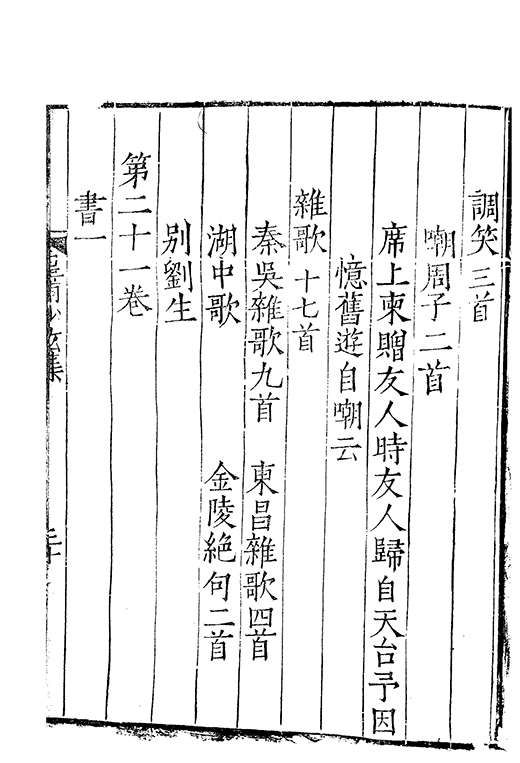 調笑三首
嘲周子二首
席上柬贈友人時友人歸自天台予因
憶舊遊自嘲云
雜歌十七首
秦吳雜歌九首 東昌雜歌四首
湖中歌 金陵絕句二首
别劉生
第二十一卷
書一